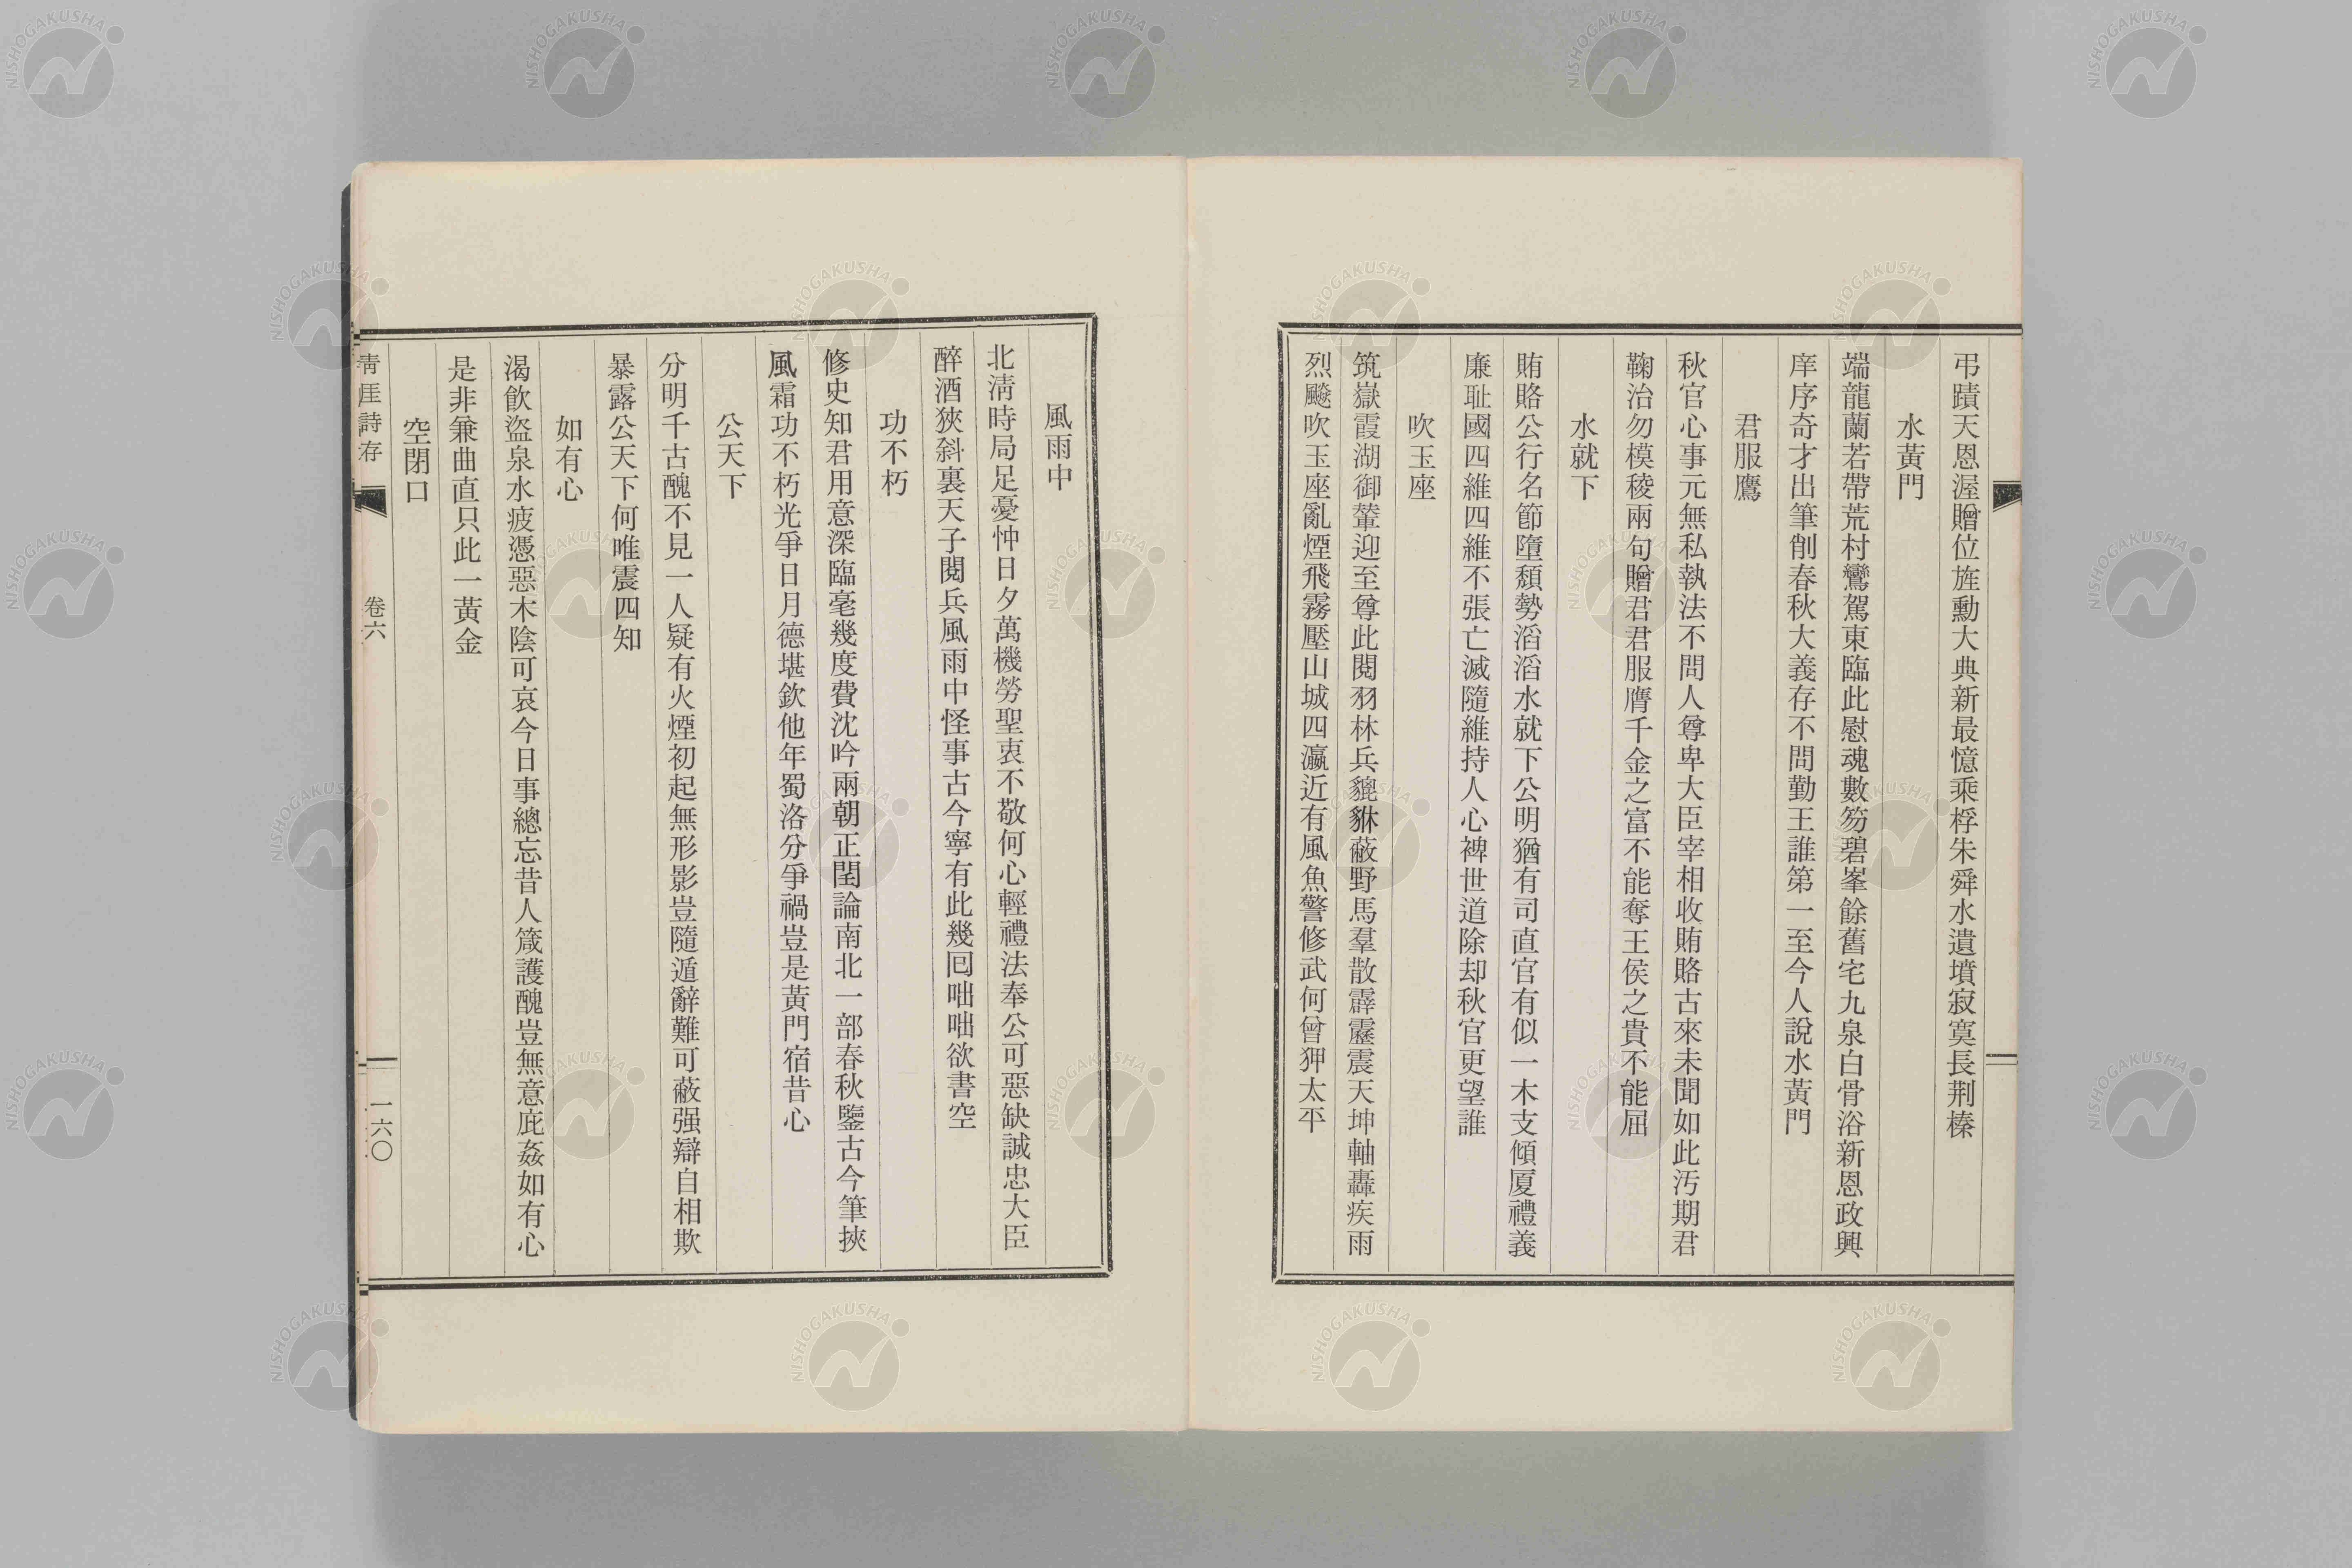 弔蹟天恩渥贈位旌勳大典新最憶乘桴朱舜水遺墳寂寞長荆榛
水黃門
端龍蘭若帶荒村鸞駕東臨此慰魂數笏碧峯餘舊宅九泉白骨浴新恩政興
庠序奇才出筆削春秋大義存不問勤王誰第一至今人說水黃門
君服鷹
秋官心事元無私執法不問人尊卑大臣宰相收賄賂古來未聞如此汚期君
鞠治勿模稜兩句贈君君服膺千金之富不能奪王侯之貴不能屈
水就下
賄賂公行名節墮頽勢滔滔水就下公明猶有司直官有似一木支傾厦禮義
廉耻國四維四維不張亡滅隨維持人心裨世道除却秋官更望誰
吹玉座
筑嶽霞湖御輦迎至尊此閱羽林兵貔貅蔽野馬羣散霹靂震天坤軸轟疾雨
烈飈吹玉座亂煙飛霧壓山城四瀛近有風魚警修武何曾狎太平
風雨中
北淸時局足憂忡日夕萬機勞聖衷不敬何心輕禮法奉公可惡缺誠忠大臣
醉酒狹斜裏天子閱兵風雨中怪事古今寧有此幾回咄咄欲書空
功不朽
修史知君用意深臨毫幾度費沈吟兩朝正閏論南北一部春秋鑒古今筆挾
風霜功不朽光爭日月德堪欽他年蜀洛分爭禍豈是黃門宿昔心
公天下
分明千古醜不見一人疑有火煙初起無形影豈隨遁辭難可蔽强辯自相欺
暴露公天下何唯震四知
如有心
渴飮盜泉水疲憑惡木陰可哀今日事總忘昔人箴護醜豈無意庇姦如有心
是非兼曲直只此一黃金
空閉口
靑厓詩存
卷六
一六〇